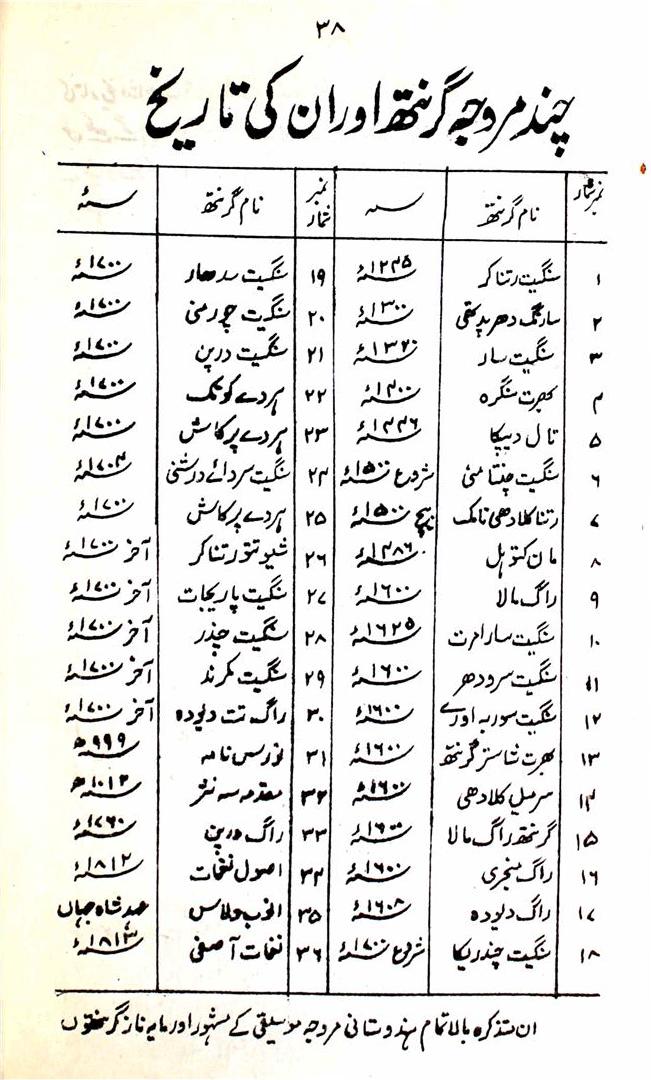 ۳۸
چند مروجہ گرنتھ اور ان کی تاریخ
نمبر شمار نام گرنتھ سنہ نمبر شمار نام گرنتھ سنہ
۱ سنگیت رتناکر ۱۲۴۵ء ۱۹ سنگیت سدھار ۱۷۰۰ء
۲ سارنگ دھر پدھتی ۱۳۰۰ء ۲۰ سنگیت چورمنی ۱۷۰۰ء
۳ سنگیت سار ۱۳۲۰ء ۲۱ سنگیت درپن ۱۷۰۰ء
۴ بھرت سنگرہ ۱۴۰۰ء ۲۲ ہردے کوتک ۱۷۰۰ء
۵ تال دیپکا ۱۴۴۶ء ۲۳ ہردے پرکاش ۱۷۰۰ء
۶ سنگیت چنتامنی شروع ۱۵۰۰ء ۲۴ سنگیت سردائے درشنی ۱۷۰۴ء
۷ رتناکلادھی نامک بیچ ۱۵۰۰ء ۲۵ ہردے پرکاش ۱۷۰۰ء
۸ مان کتوہل ۱۴۸۶ء ۲۶ شیوتتو رتناکر آخر ۱۷۰۰ء
۹ راگ مالا ۱۶۰۰ء ۲۷ سنگیت پاریجات آخر ۱۷۰۰ء
۱۰ سنگیت سارامرت ۱۶۲۵ء ۲۸ سنگیت چندر آخر ۱۷۰۰ء
۱۱ سنگیت سرودھر ۱۶۰۰ء ۲۹ سنگیت مکرند آخر ۱۷۰۰ء
۱۲ سنگیت سوریہ اورے ۱۶۰۰ء ۳۰ راگ تت دلودہ آخر ۱۷۰۰ء
۱۳ بھرت شاستر گرنتھ ۱۶۰۰ء ۳۱ نورس نامہ ۹۹۹ھ
۱۴ سرمیل کلادھی ۱۶۰۰ء ۳۲ مقدمہ سہ نثر ۱۰۱۲ھ
۱۵ گرنتھ راگ مالا ۱۶۰۰ء ۳۳ راگ درپن ۱۷۶۰ء
۱۶ راگ منجری ۱۶۰۰ء ۳۴ اصول نغمات ۱۸۱۲ء
۱۷ راگ دلودہ ۱۶۰۸ء ۳۵ انوپ ولاس عہد شاہ جہاں
۱۸ سنگیت چندریکا شروع ۱۷۰۰ء ۳۶ نغمات آصفی ۱۸۱۳ء
ان متذکرہ بالا تمام ہندوستانی مروجہ موسیقی کے مشہور اور مایہ ناز گرنتھوں